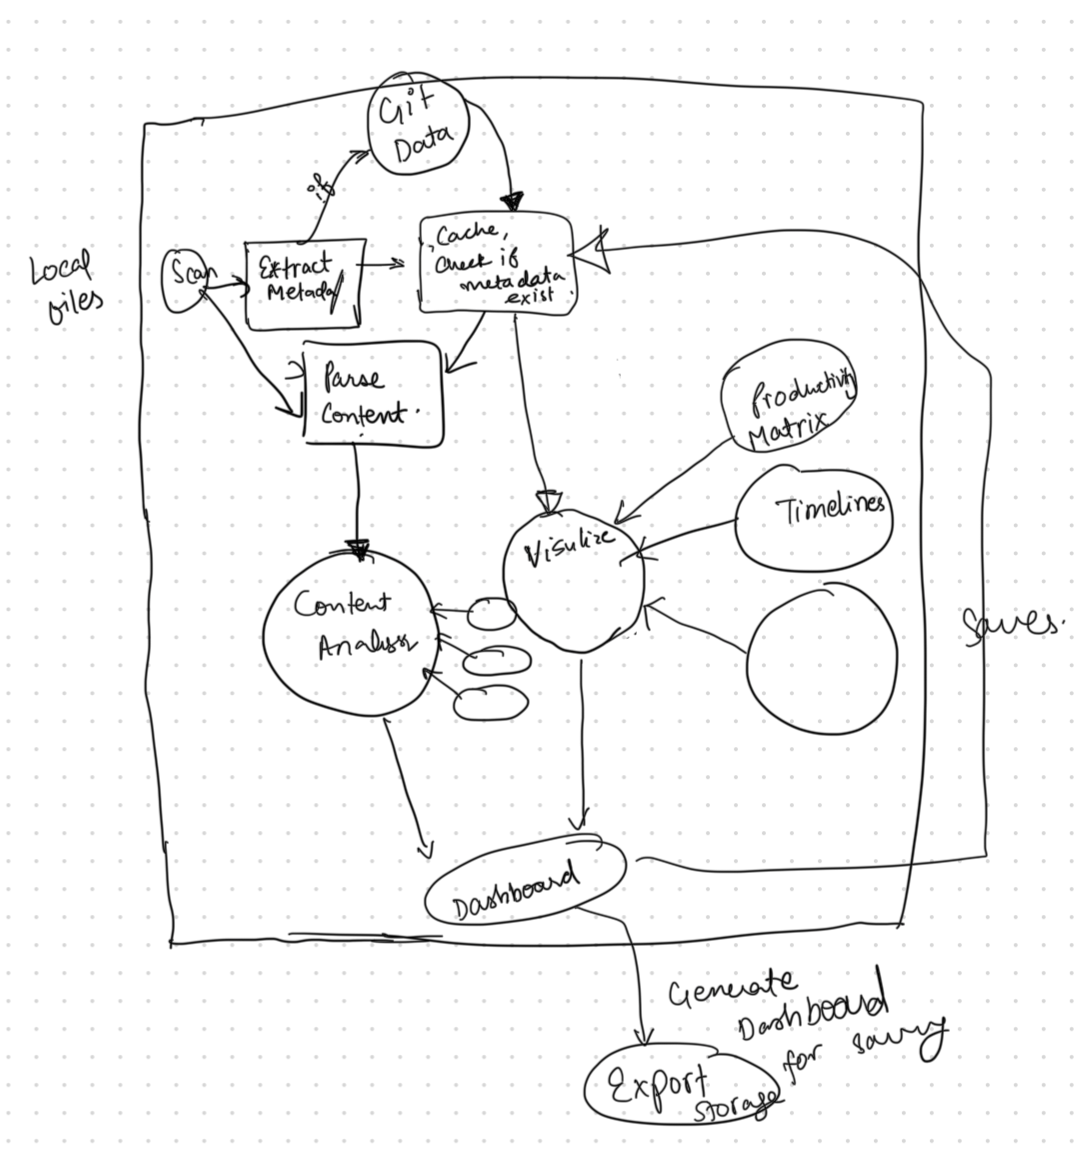 Git
Data
if
Local
files
Scan
Extract
Metada
Cache,
Check if
metadata
exist.
Parse
Content.
Productivity
Matrix
Timelines
Visulize
Content
Analysis
Saves.
Dashboard
Generate
Dashboard
for saving
Export
Storage